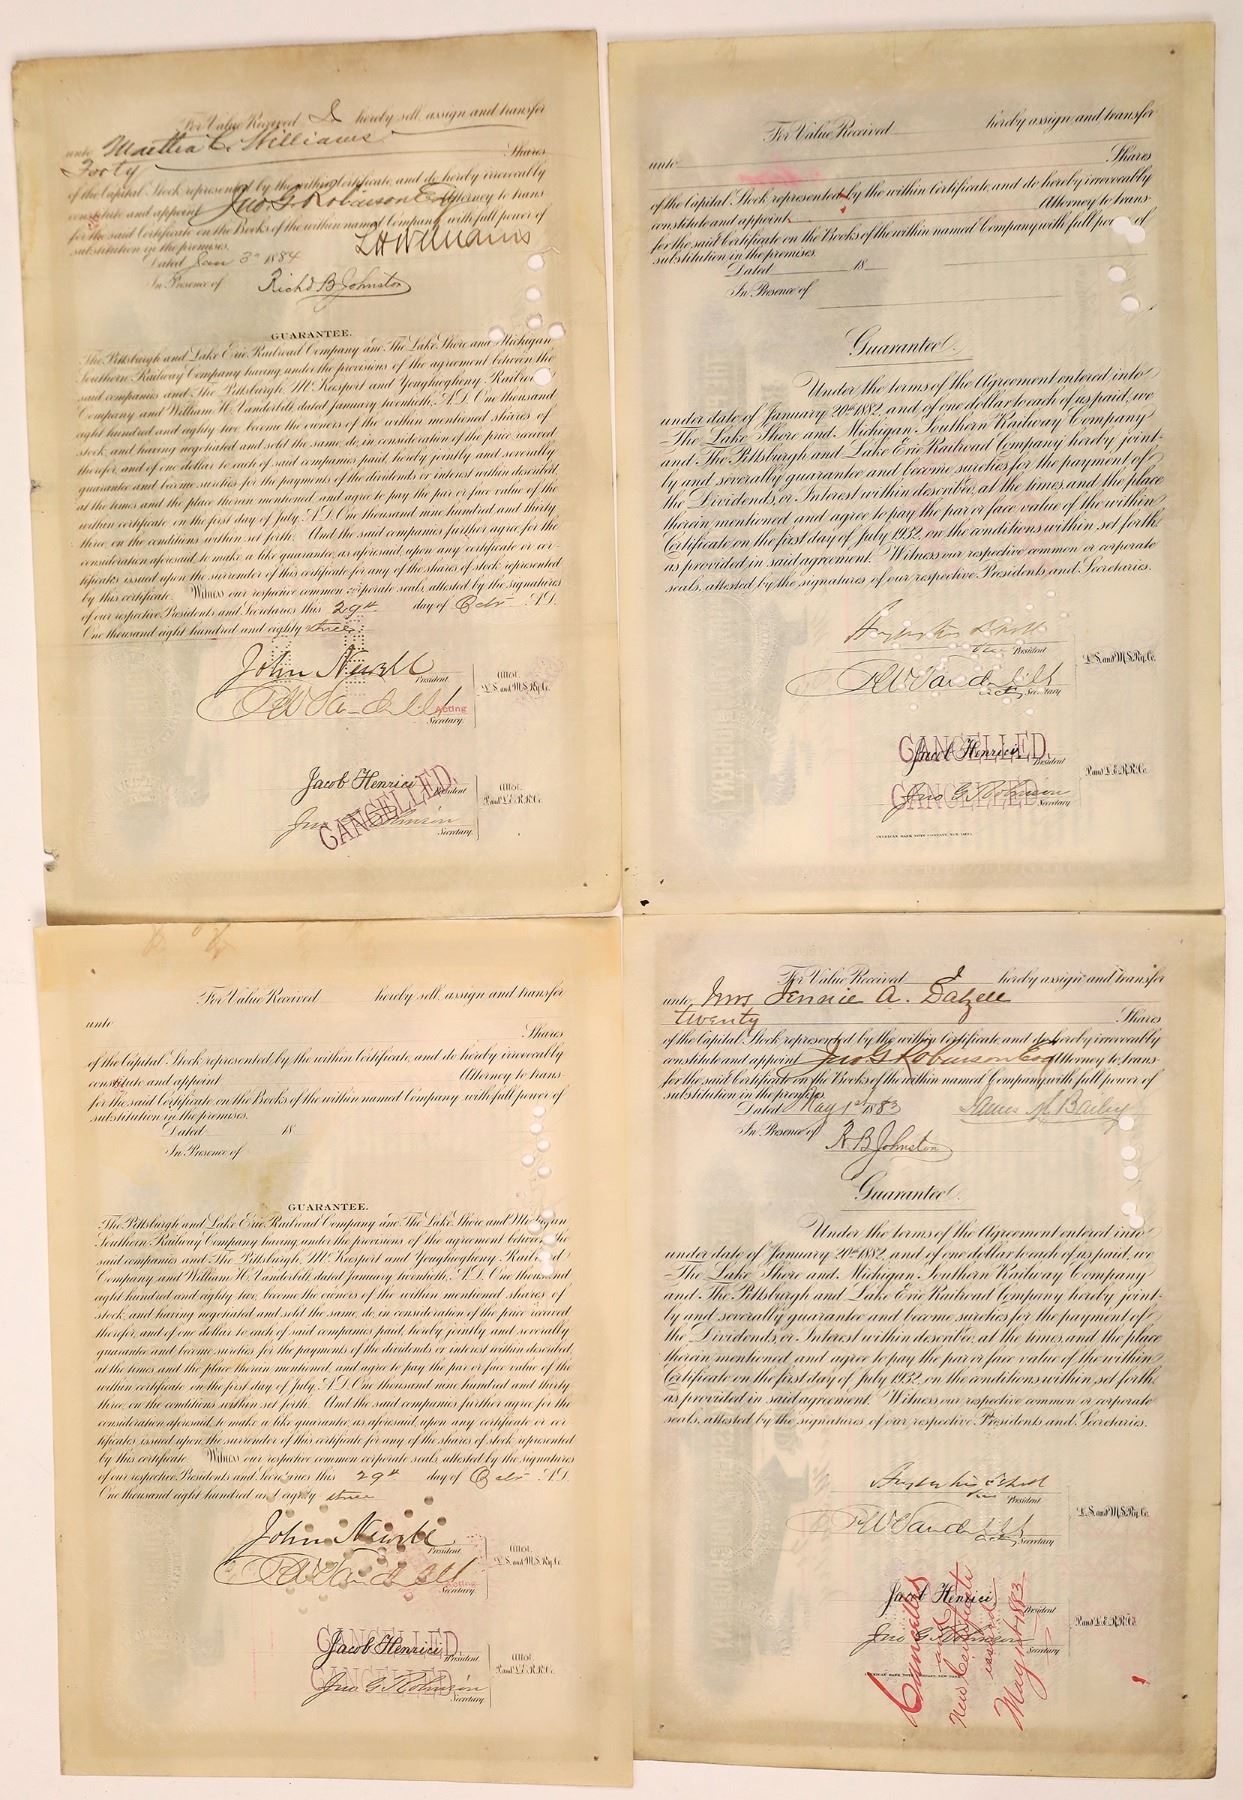 For Value Received I hereby sell, assign and transfer
unto Martha C. Williams
Forty Shares
of the Capital Stock represented by the within Certificate, and do hereby irrevocably
constitute and appoint Jno. G. Robinson Esq Attorney to trans-
fer the said Certificate on the Books of the within named Company with full power of
substitution in the premises.
L H Williams
Dated Jan 3rd 1884
In Presence of Richd B Johnston
GUARANTEE.
The Pittsburgh and Lake Erie Railroad Company and The Lake Shore and Michigan
Southern Railway Company having, under the provisions of the agreement between the
said companies and The Pittsburgh, McKeesport and Youghiogheny Railroad
Company and William H. Vanderbilt, dated January twentieth, A.D. One thousand
eight hundred and eighty two, become the owners of the within mentioned shares of
stock, and having negotiated and sold the same, do, in consideration of the price received
therefor, and of one dollar to each of said companies paid, hereby jointly and severally
guarantee and become sureties for the payments of the dividends or interest within described,
at the times and the place therein mentioned, and agree to pay the par or face value of the
within certificate on the first day of July A.D. One thousand nine hundred and thirty
three, on the conditions within set forth. And the said companies further agree for the
consideration aforesaid, to make a like guarantee, as aforesaid, upon any certificate or cer-
tificates issued upon the surrender of this certificate for any of the shares of stock represented
by this certificate. Witness our respective common corporate seals, attested by the signatures
of our respective Presidents and Secretaries this 29th day of Octr A.D.
One thousand eight hundred and eighty three
John Newell
President.
Attest.
L.S. and M.S. Ry. Co.
E W Vanderbilt
Acting
Secretary.
Jacob Henrici
President
Attest.
P. and L.E. R.R. Co.
Jno G Robinson
Secretary.
CANCELLED.
For Value Received hereby assign and transfer
unto
Shares
of the Capital Stock represented by the within Certificate, and do hereby irrevocably
constitute and appoint Attorney to trans-
fer the said Certificate on the Books of the within named Company with full power of
substitution in the premises.
Dated 18
In Presence of
Guarantee.
Under the terms of the Agreement entered into
under date of January 20th 1882, and of one dollar to each of us paid, we
The Lake Shore and Michigan Southern Railway Company
and The Pittsburgh and Lake Erie Railroad Company hereby joint-
ly and severally guarantee and become sureties for the payment of
the Dividends, or Interest within described, at the times, and the place
therein mentioned and agree to pay the par or face value of the within
Certificate on the first day of July 1932, on the conditions within set forth,
as provided in said agreement. Witness our respective common or corporate
seals, attested by the signatures of our respective Presidents and Secretaries.
Augustus Schell
Vice President
L.S. and M.S. Ry. Co.
E W Vanderbilt
Actg Secretary
CANCELLED.
Jacob Henrici
President
P. and L.E. R.R. Co.
CANCELLED.
Jno G Robinson
Secretary
AMERICAN BANK NOTE COMPANY, NEW YORK.
For Value Received hereby sell, assign and transfer
unto
Shares
of the Capital Stock represented by the within Certificate, and do hereby irrevocably
constitute and appoint Attorney to trans-
fer the said Certificate on the Books of the within named Company with full power of
substitution in the premises.
Dated 18
In Presence of
GUARANTEE.
The Pittsburgh and Lake Erie Railroad Company and The Lake Shore and Michigan
Southern Railway Company having, under the provisions of the agreement between the
said companies and The Pittsburgh, McKeesport and Youghiogheny Railroad
Company, and William H. Vanderbilt, dated January twentieth, A.D. One thousand
eight hundred and eighty two, become the owners of the within mentioned shares of
stock, and having negotiated and sold the same, do, in consideration of the price received
therefor, and of one dollar to each of said companies paid, hereby jointly and severally
guarantee and become sureties for the payments of the dividends or interest within described,
at the times and the place therein mentioned, and agree to pay the par or face value of the
within certificate on the first day of July, A.D. One thousand nine hundred and thirty
three, on the conditions within set forth. And the said companies further agree for the
consideration aforesaid, to make a like guarantee, as aforesaid, upon any certificate or cer-
tificates issued upon the surrender of this certificate for any of the shares of stock represented
by this certificate. Witness our respective common corporate seals, attested by the signatures
of our respective Presidents and Secretaries this 29th day of Octr A.D.
One thousand eight hundred and eighty three
John Newell
President.
Attest.
L.S. and M.S. Ry. Co.
E W Vanderbilt
Acting
Secretary
CANCELLED.
Jacob Henrici
President
Attest.
P. and L.E. R.R. Co.
CANCELLED.
Jno G Robinson
Secretary.
For Value Received I hereby assign and transfer
unto Mrs Jennie A. Dalzell
twenty Shares
of the Capital Stock represented by the within Certificate and do hereby irrevocably
constitute and appoint Jno G Robinson Esq Attorney to trans-
fer the said Certificate on the Books of the within named Company, with full power of
substitution in the premises.
Dated May 1st 1883 James M Bailey
In Presence of R B Johnston
Guarantee.
Under the terms of the Agreement entered into
under date of January 20th 1882, and of one dollar to each of us paid, we
The Lake Shore and Michigan Southern Railway Company
and The Pittsburgh and Lake Erie Railroad Company hereby joint-
ly and severally guarantee and become sureties for the payment of
the Dividends, or Interest within described, at the times, and the place
therein mentioned and agree to pay the par or face value of the within
Certificate on the first day of July 1932, on the conditions within set forth,
as provided in said agreement. Witness our respective common or corporate
seals, attested by the signatures of our respective Presidents and Secretaries.
Augustus Schell
Vice President
L.S. and M.S. Ry. Co.
E W Vanderbilt
Actg Secretary
Jacob Henrici
President
P. and L.E. R.R. Co.
Jno G Robinson
Secretary
AMERICAN BANK NOTE COMPANY, NEW YORK.
Cancelled
and
New Certificate
issued
May 1st 1883